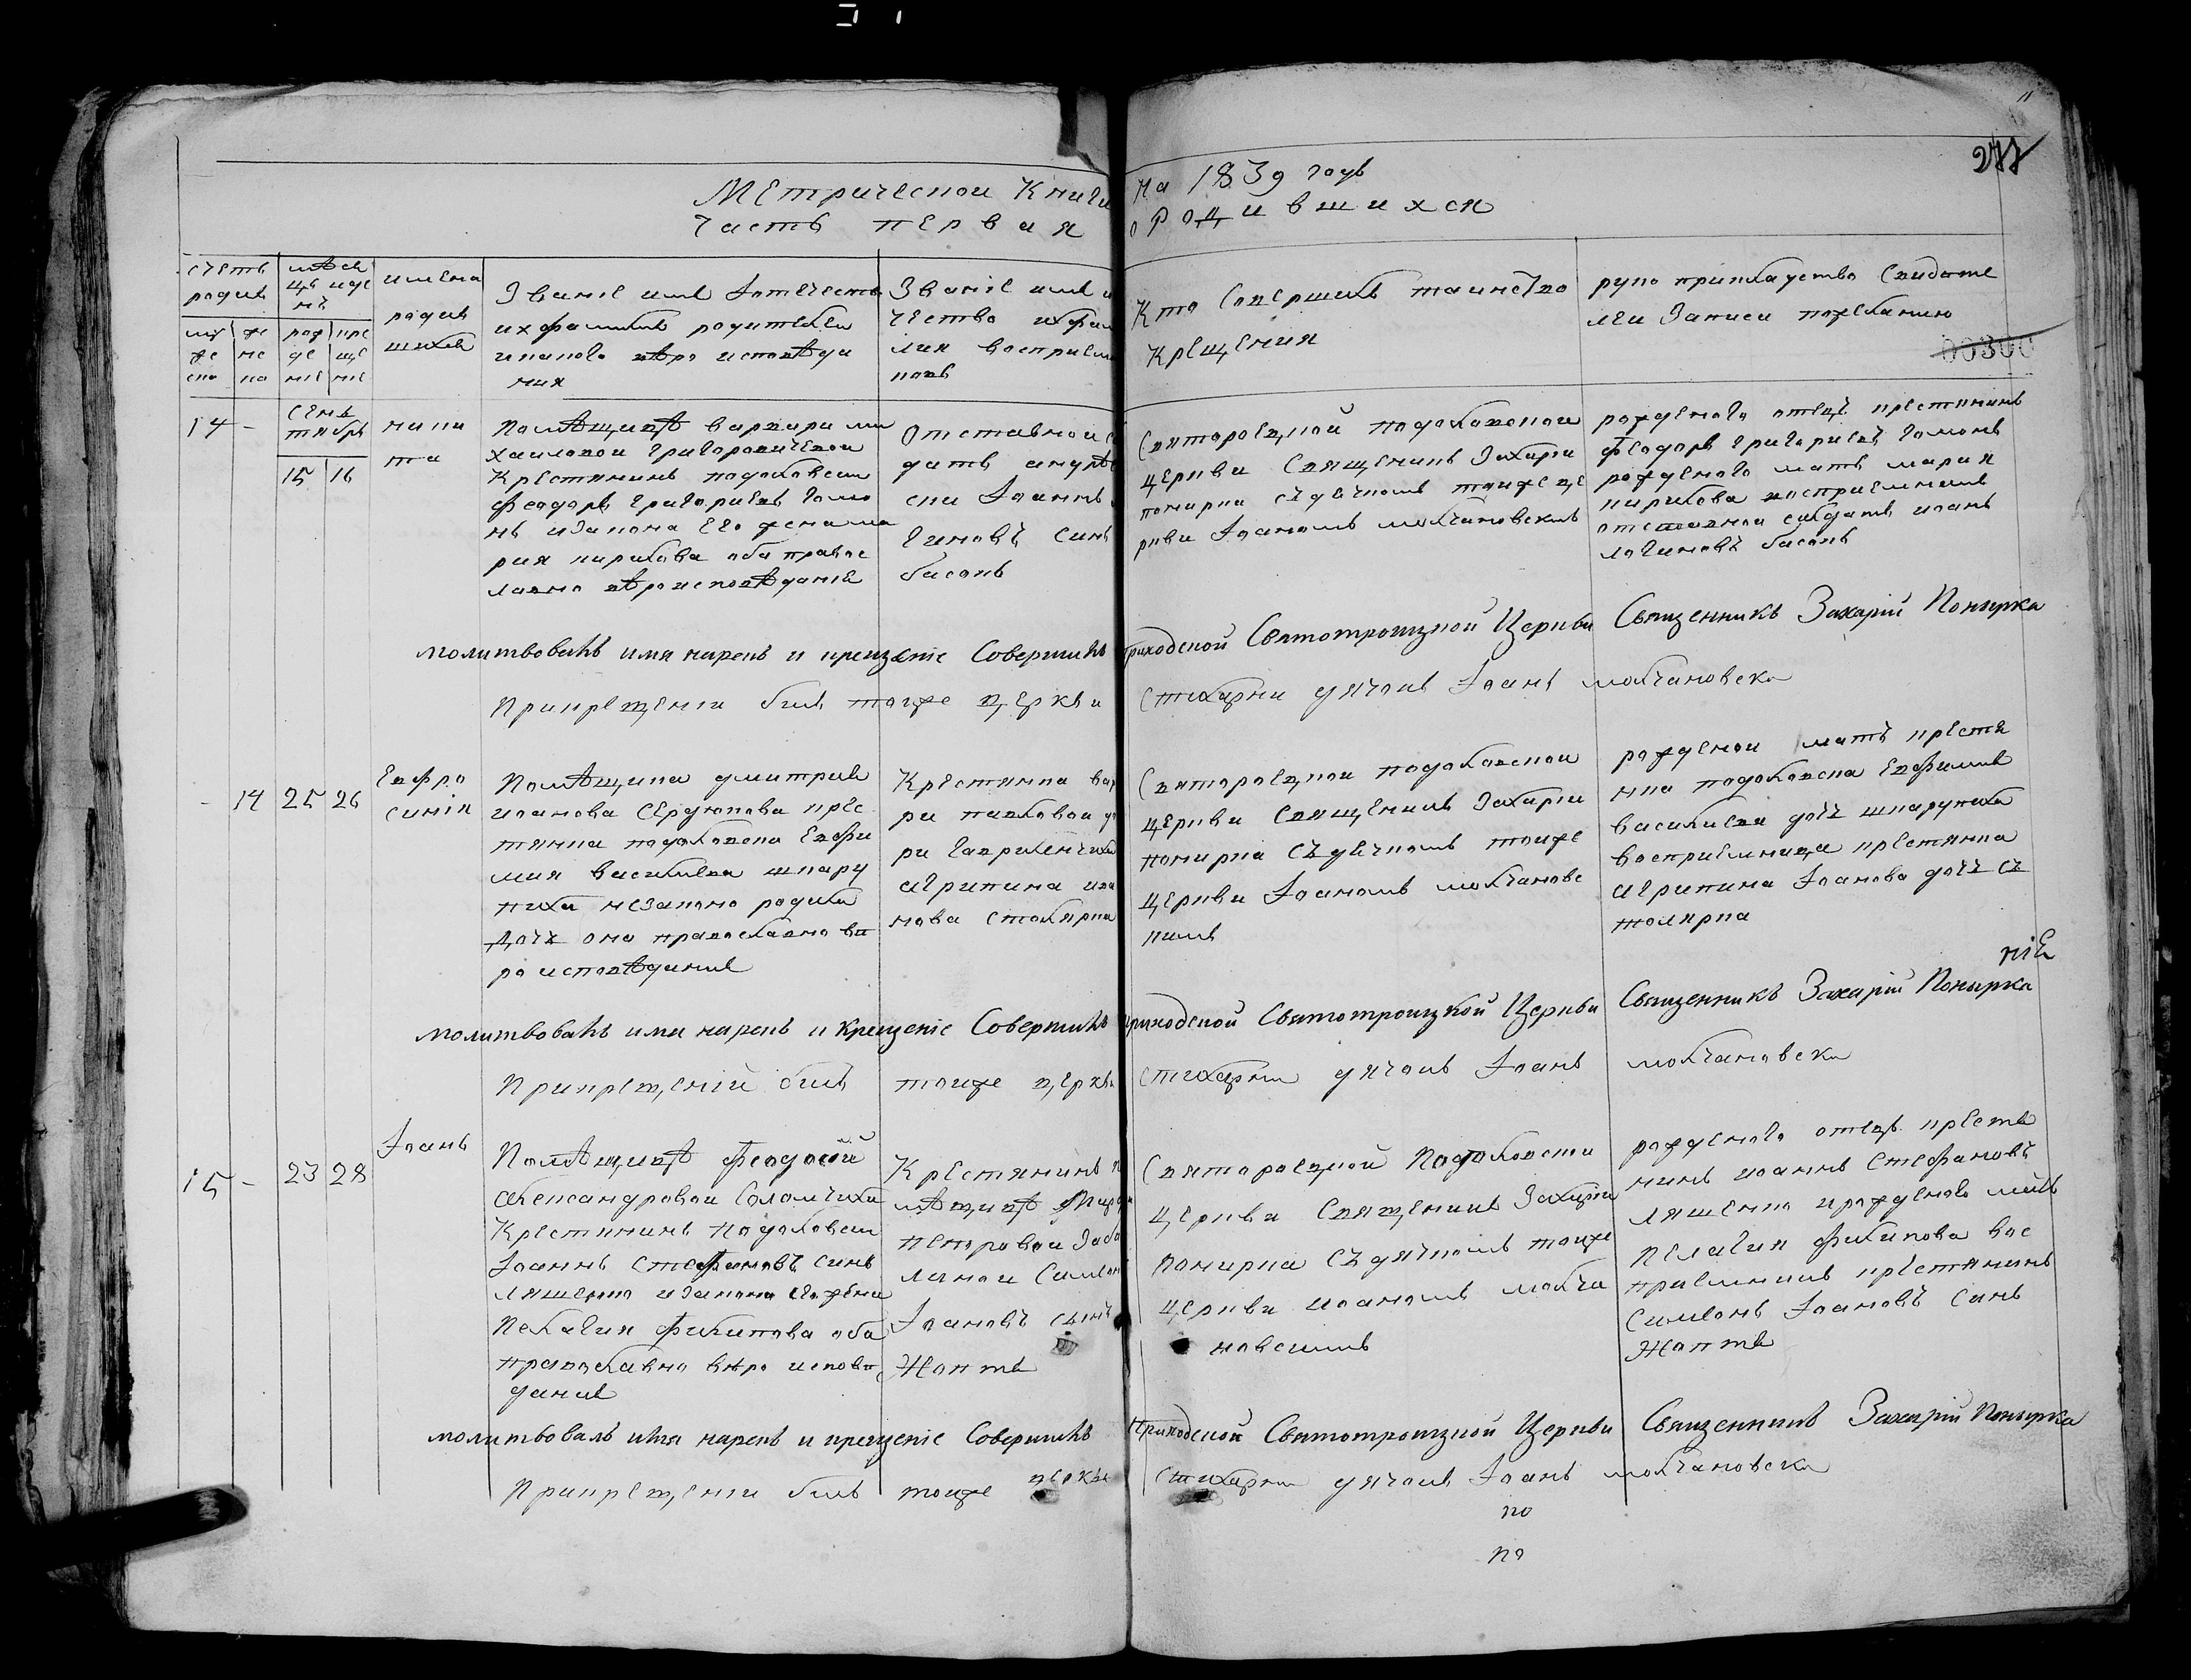 277
Метрической Книги на 1839 годъ
Часть первая о родившихся
счетъ родив
мѣся ца и де нъ
имена родив шихся
муже ско
же нс ка
рож де ние
кре ще ние
Званіе имя и отечество
и хфамилия родителей
и какова вѣро исповѣда
ния
Званіе имя и
чество и хфам
лия восприем
ковъ
Кто Совершилъ таинство
Крещения
рукоприкладство Свидете
леи Записи по желанию
00300
14 -
Сен
тябрь
15 16
ники
та
Помѣщицѣ варвари ми
хаиловои Григоровичевои
Крестянинъ подоловски
Феодоръ Григориевъ Гомо
нъ и закона его жена ма
рия кирилова оба правос
лавно вѣроисповѣдания
Отставнои с
датъ андрѣе
ски Іоаннъ
гиновъ Синъ
басонъ
Святороецкой подоловской
церкви Священикъ Захари
понирка съ дячкомъ тоиже це
ркви Іоаномъ молчановскимъ
рожденого отецъ крестянинъ
Феодоръ Григориевъ Гомонъ
рожденого мать мария
кирилова восприемникъ
отставнои солдатъ иоанъ
логиновъ басонъ
молитвовалъ имя нарекъ и крещеніе Совершилъ приходской Святотроицкой Церкви Священникъ Захарій Понырка
Прикрещении билъ тоиже церкви стихарни дячокъ Іоанъ молчановски
- 14 25 26
Евфро
синія
Помѣщика дмитрия
иоанова Сердюкова крес
тянка подоловска Евфи
мия василиева шпару
пиха незаконо родила
дочъ она православно ви
ро исповѣдания
Крестянка вар
ри павловои до
ри гавриленчихи
агрипина ива
нова столярка
Святороецкой подоловской
церкви Священикъ Захари
понирка съ дячкомъ тоиже
церкви Іоаномъ молчановс
кимъ
рожденои мать крестя
нка подоловска Евфимия
василиева дочъ шпарупиха
восприемница крестянка
агрипина Іоанова дочъ с
толярка
ніе
молитвовалъ имя нарекъ и крещеніе Совершилъ приходской Святотроицкой Церкви Священникъ Захарій Понырка
Прикрещеній билъ тоиже церкви стихарни дячокъ Іоанъ молчановски
15 - 23 28
Іоанъ
Помѣщицѣ Феодосій
Александровои Соломчихи
Крестянинъ Подоловски
Іоаннъ Стефановъ синъ
ляшенко и закона его жена
Пелагия Филипова оба
православно вѣро испове
дания
Крестянинъ п
мѣщицѣ
петровои Заба
ланои Симеон
Іоановъ синъ
Жоптя
Святороецкой Подоловски
церкви Священикъ Захари
понирка съ дячкомъ тоиже
церкви иоаномъ молча
новскимъ
рожденого отецъ крестя
нинъ иоаннъ Стефановъ
ляшенко и рожденого мать
пелагия филипова вос
приемникъ крестянинъ
Симеонъ Іоановъ синъ
Жоптя
молитвовалъ имя нарекъ и крещеніе Совершилъ Приходской Святотроицкой Церкви Священникъ Захарій Понырка
Прикрещении билъ тоиже церкви стихарни дячокъ Іоанъ молчановски
по
по